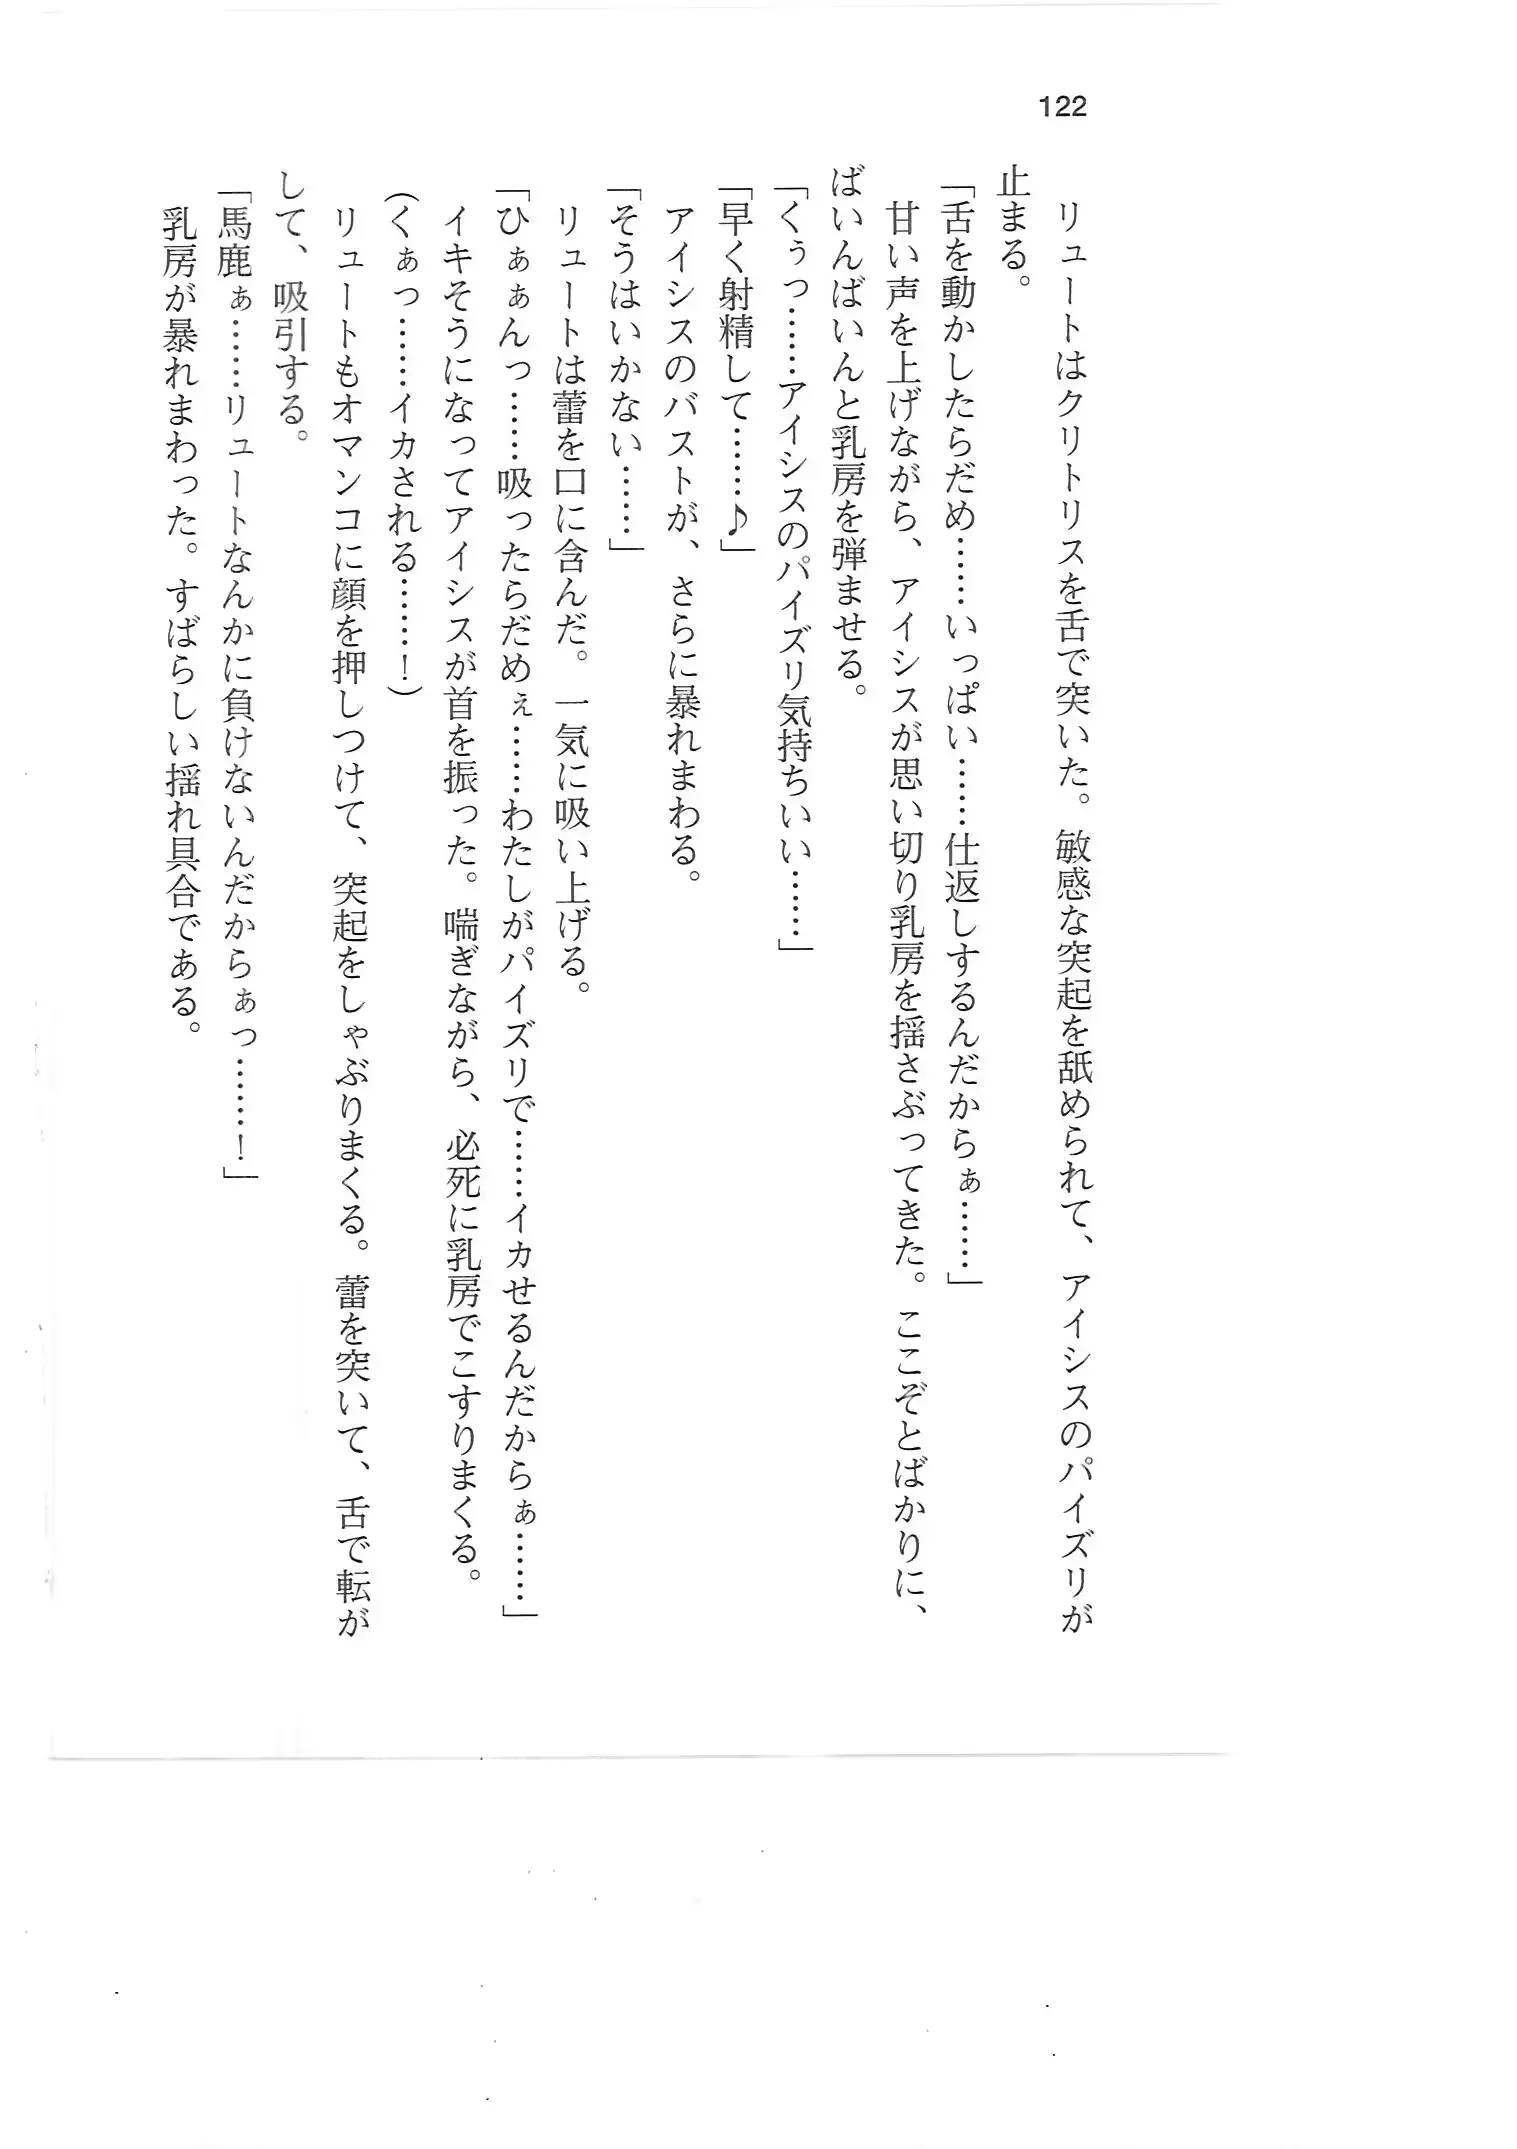 122
リュートはクリトリスを舌で突いた。敏感な突起を舐められて、アイシスのパイズリが
止まる。
「舌を動かしたらだめ……いっぱい……仕返しするんだからぁ……」
甘い声を上げながら、アイシスが思い切り乳房を揺さぶってきた。ここぞとばかりに、
ばいんばいんと乳房を弾ませる。
「くぅっ……アイシスのパイズリ気持ちいい……」
「早く射精して……♪」
アイシスのバストが、さらに暴れまわる。
「そうはいかない……」
リュートは蕾を口に含んだ。一気に吸い上げる。
「ひぁぁんっ……吸ったらだめぇ……わたしがパイズリで……イカせるんだからぁ……」
イキそうになってアイシスが首を振った。喘ぎながら、必死に乳房でこすりまくる。
(くぁっ……イカされる……!)
リュートもオマンコに顔を押しつけて、突起をしゃぶりまくる。蕾を突いて、舌で転が
して、吸引する。
「馬鹿ぁ……リュートなんかに負けないんだからぁっ……!」
乳房が暴れまわった。すばらしい揺れ具合である。